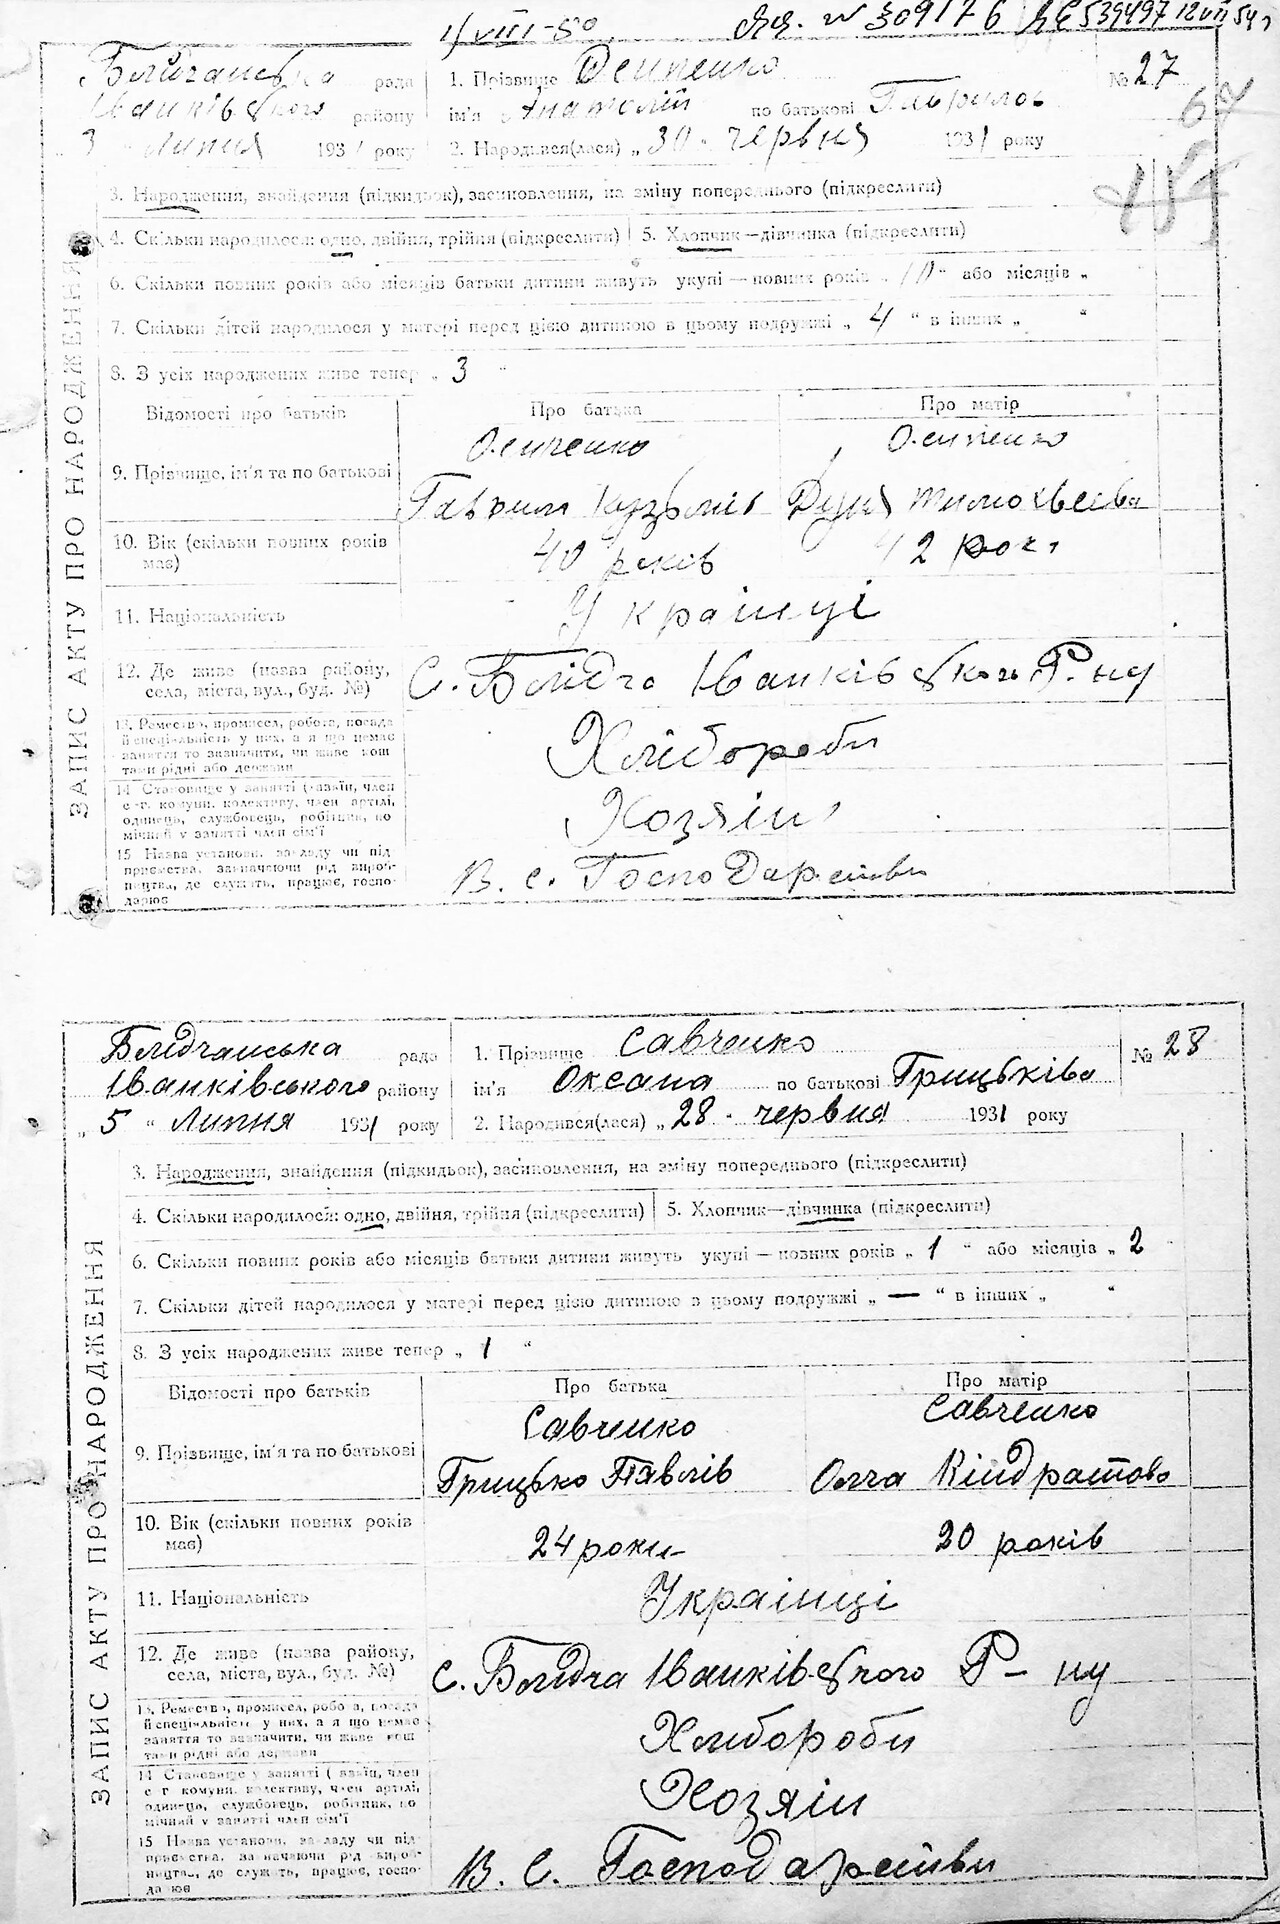 4/VIII-50 № 309176 539497 12 VII 54 р
ЗАПИС АКТУ ПРО НАРОДЖЕННЯ
рада
Іванківського району
3 Липня 1931 року
1. Прізвище Осипенко
ім'я Анатолій по батькові Гаврилов
2. Народився(лася) „ 30 " червня 1931 року
№ 27
3. Народження, знайдення (підкидьок), засиновлення, на зміну попереднього (підкреслити)
4. Скільки народилося: одно, двійня, трійня (підкреслити) 5. Хлопчик—дівчинка (підкреслити)
6. Скільки повних років або місяців батьки дитини живуть укупі — повних років „ 10 " або місяців „
7. Скільки дітей народилося у матері перед цією дитиною в цьому подружжі „ 4 " в інших „ "
8. З усіх народжених живе тепер „ 3 "
Відомості про батьків Про батька Про матір
9. Прізвище, ім'я та по батькові
Осипенко Осипенко
Гаврило Кузьмів
10. Вік (скільки повних років має)
40 років 42 роки
11. Національність
Українці
12. Де живе (назва району,
села, міста, вул., буд. №)
С. Блідча Іванківського Р-ну
13. Ремество, промисел, робота, посада
й спеціяльність у них, а я що немає
заняття то зазначити, чи живе кош
тами рідні або держави
Хлібороби
14 Становище у занятті (хазяїн, член
с-г. комуни, колективу, член артілі,
одинець, службовець, робітник, по
мічний у занятті член сім'ї
Хозяїн
15 Назва установи, закладу чи під
приємства, зазначаючи рід вироб-
ництва, де служить, працює, госпо-
дарює
В. С. Господарстви
ЗАПИС АКТУ ПРО НАРОДЖЕННЯ
Блідчанська рада
Іванківського району
„ 5 " Липня 1931 року
1. Прізвище Савченко
ім'я Оксана по батькові Грицьківа
2. Народився(лася) „ 28 " червня 1931 року
№ 28
3. Народження, знайдення (підкидьок), засиновлення, на зміну попереднього (підкреслити)
4. Скільки народилося: одно, двійня, трійня (підкреслити) 5. Хлопчик—дівчинка (підкреслити)
6. Скільки повних років або місяців батьки дитини живуть укупі — повних років „ 1 " або місяців „ 2
7. Скільки дітей народилося у матері перед цією дитиною в цьому подружжі „ — " в інших „ "
8. З усіх народжених живе тепер „ 1 "
Відомості про батьків Про батька Про матір
9. Прізвище, ім'я та по батькові
Савченко Савченко
Грицько Павлів Олга Кіндратова
10. Вік (скільки повних років має)
24 роки 20 років
11. Національність
Українці
12. Де живе (назва району,
села, міста, вул., буд. №)
С. Блідча Іванківського Р-ну
13. Ремество, промисел, робота, посада
й спеціяльність у них, а я що немає
заняття то зазначити, чи живе кош
тами рідні або держави
Хлібороби
14 Становище у занятті (хазяїн, член
с г комуни, колективу, член артілі,
одинець, службовець, робітник, по
мічний у занятті член сім'ї
Хозяїн
15 Назва установи, закладу чи під
приємства, зазначаючи рід вироб-
ництва, де служить, працює, госпо-
дарює
В. С. Господарстви